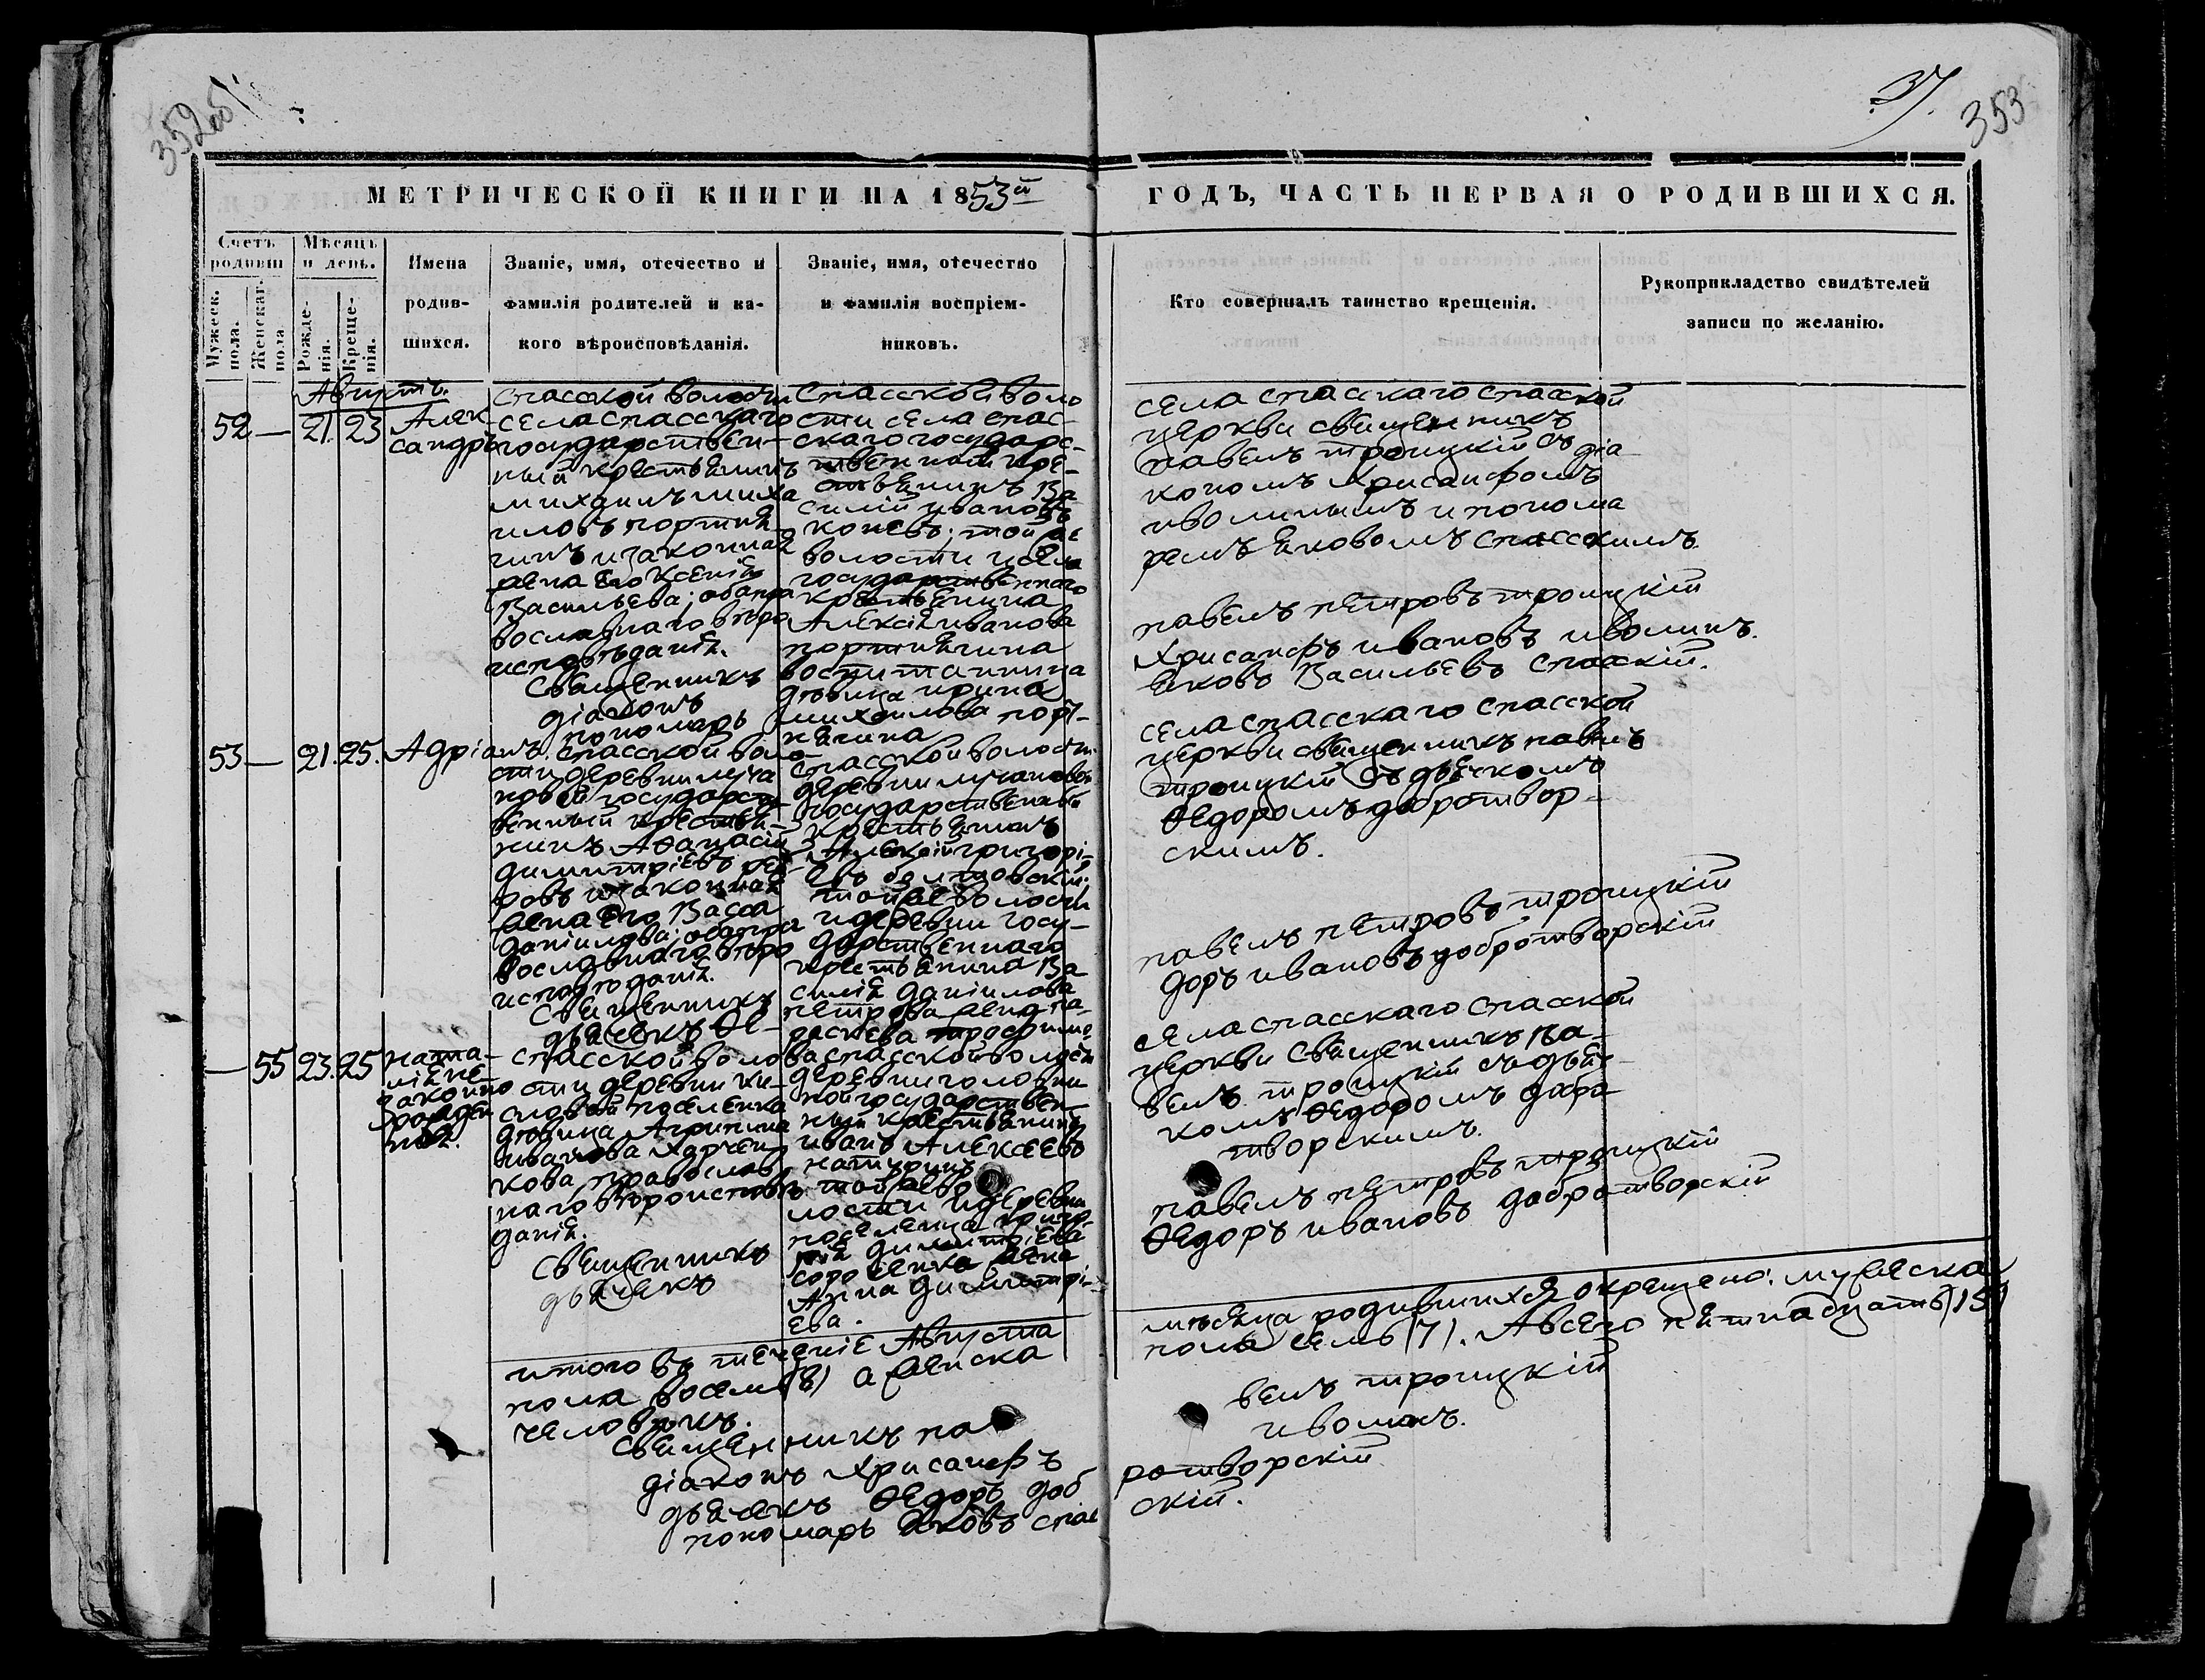 352об
37.
353
МЕТРИЧЕСКОЙ КНИГИ НА 1853й
ГОДЪ, ЧАСТЬ ПЕРВАЯ О РОДИВШИХСЯ.
Счетъ родивш
Мужеск. пола.
Женскаг. пола
Мѣсяцъ и день.
Рожде-нія.
Креще-нія.
Имена
родив-
шихся.
Званіе, имя, отечество и
фамилія родителей и ка-
кого вѣроисповѣданія.
Званіе, имя, отечество
и фамилія воспріем-
никовъ.
Кто совершалъ таинство крещенія.
Рукоприкладство свидѣтелей
записи по желанію.
Августъ.
52 — 21. 23
Алек
сандръ
Спасской волости
села спасскаго
государствен-
ный крестьянинъ
михаилъ миха
иловъ портня
гинъ и законная
жена его Ксенія
Васильева; оба пра
вославнаго вѣро
исповѣданія.
Священникъ
діаконъ
пономарь
Спасской воло
сти села спас-
скаго государс-
твенный кре-
стьянинъ Ва
силій ивановъ
коневъ; той же
волости и села
государственнаго
крестьянина
Алексія иванова
портнягина
воспитанница
дѣвица ирина
михаилова порт-
нягина
села спасскаго спасской
церкви священникъ
павелъ троицкій съ діа
кономъ Хрисанфомъ
иволинымъ и понома
ремъ яковомъ спасскимъ.
павелъ петровъ троицкій
Хрисанфъ ивановъ иволинъ.
яковъ Васильевъ спасскій.
53 — 21. 25. Адріанъ.
спасской воло
сти деревни луча
новой государст-
венный крестья-
нинъ Аѳанасій
димитріевъ
ровъ и законная
жена его Васса
даніилова; оба пра
вославнаго вѣро
исповѣданія.
Священникъ
дьячекъ Ѳе-
спасской волости
деревни лучановой
государственный
крестьянинъ
Алексій григорі-
евъ болтовскій.
той же волости
и деревни госу-
дарственнаго
крестьянина Ва
силія даніилова
петрова жена па-
раскева трофимо
ва
села спасскаго спасской
церкви священникъ павелъ
троицкій съ дьячкомъ
Ѳедоромъ добротвор-
скимъ.
павелъ петровъ троицкій
доръ ивановъ добротворскій
— 55 23. 25
ната-
лія не
законно
рожден
ная.
спасской воло
сти деревни ки-
словой поселенка
дѣвица Агрипина
иванова харчен
кова православ
наго вѣроисповѣ
данія.
Священникъ
дьячекъ
спасской волости
деревни головни
ной государствен-
ный крестьянинъ
иванъ Алексеевъ
той же во
лости и деревни
поселенца григо-
рія димитріева
жена
Анна димитрі-
ева.
села спасскаго спасской
церкви священникъ па-
велъ троицкій съ дьяч-
комъ Ѳедоромъ добро
творскимъ.
павелъ петровъ троицкій
Ѳедоръ ивановъ добротворскій
итого въ теченіе Августа
мѣсяца родившихся окрещено: мужеска
пола восемь (8) а женска
пола семь (7). А всего пятнадцать (15)
человѣкъ.
Священникъ па
велъ троицкій
діаконъ Хрисанфъ
иволинъ.
дьячекъ Ѳедоръ доб
ротворскій
пономарь яковъ спас
скій.